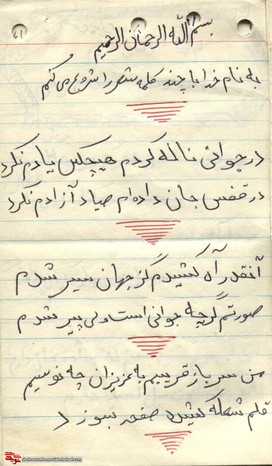 ۶۱
بسم الله الرحمان الرحیم
به نام خدا با چند کلمه شعر را شروع می کنم
در جوانی ناله کردم هیچکس یادم نکرد
در قفس جان داده ام صیاد آزادم نکرد
آنقدر آه کشیدم کز جهان سیر شدم
صورتم گرچه جوانی است ولی پیر شدم
من سرباز غریبم به عزیزان چه نویسم
قلم شعله کشیده صفحه سوزد